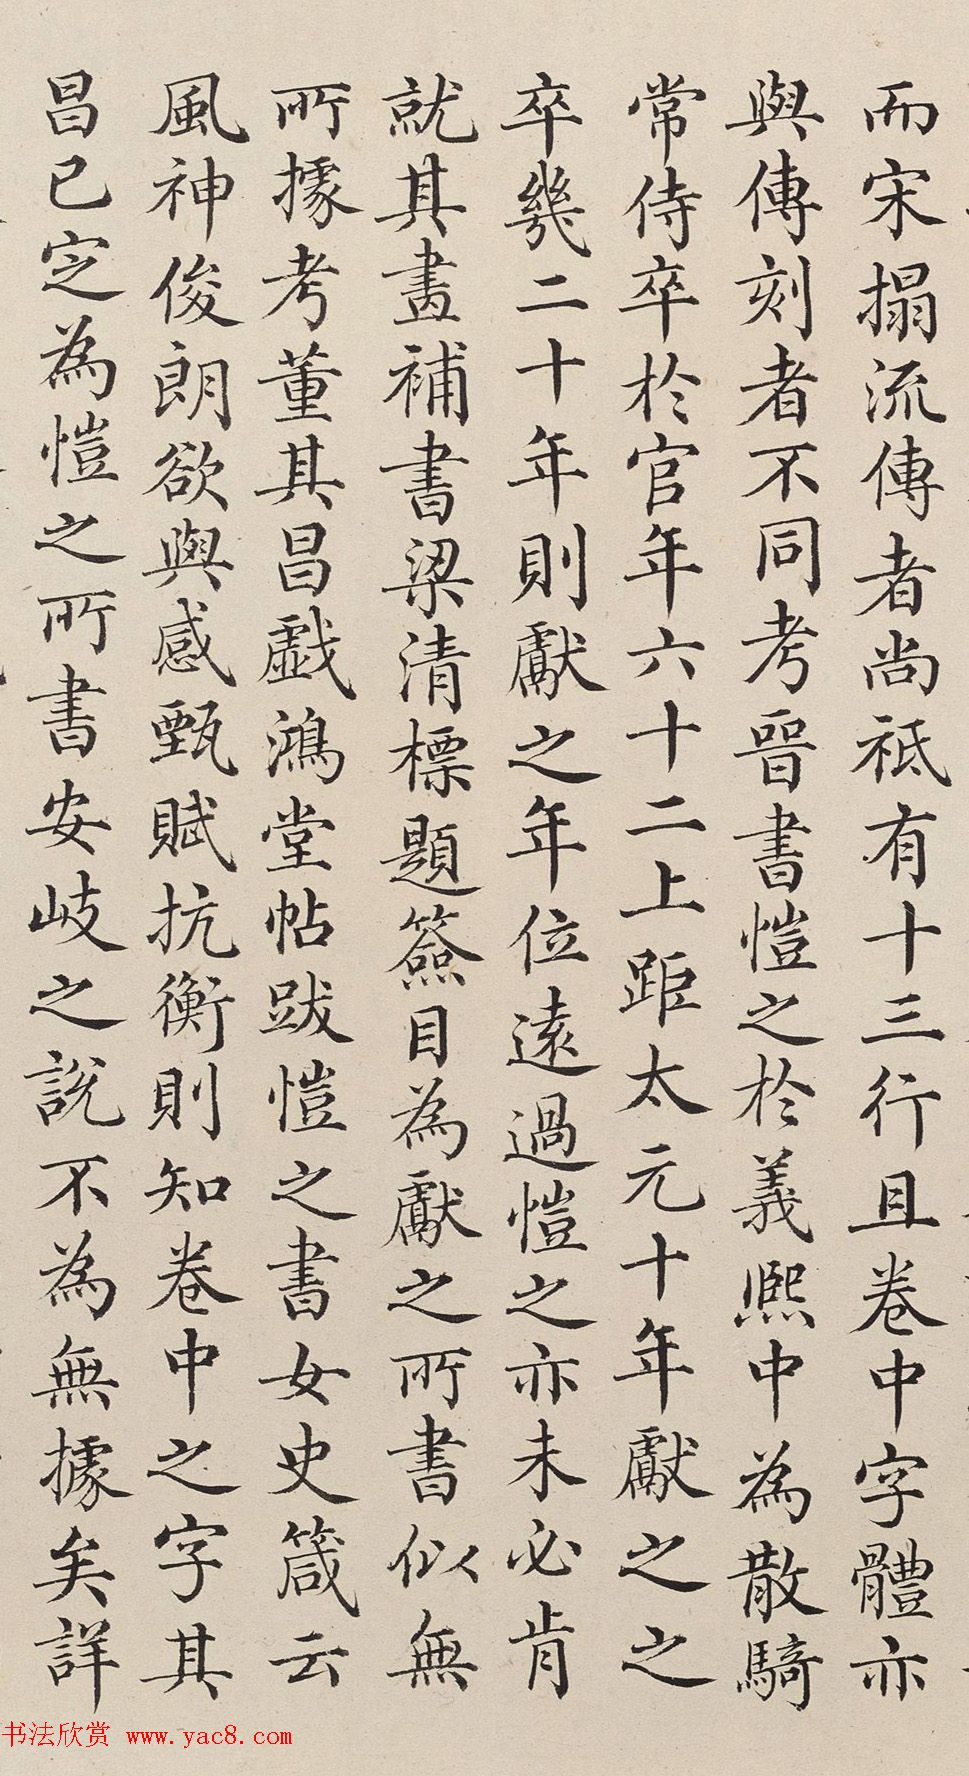 而宋搨流傳者尚祗有十三行且卷中字體亦
與傳刻者不同考晉書愷之於義熙中為散騎
常侍卒於官年六十二上距太元十年獻之之
卒幾二十年則獻之年位遠過愷之亦未必肯
就其畫補書梁清標題簽目為獻之所書似無
所據考董其昌戲鴻堂帖跋愷之書女史箴云
風神俊朗欲與感甄賦抗衡則知卷中之字其
昌已定為愷之所書安岐之說不為無據矣詳
书法欣赏 www.yac8.com